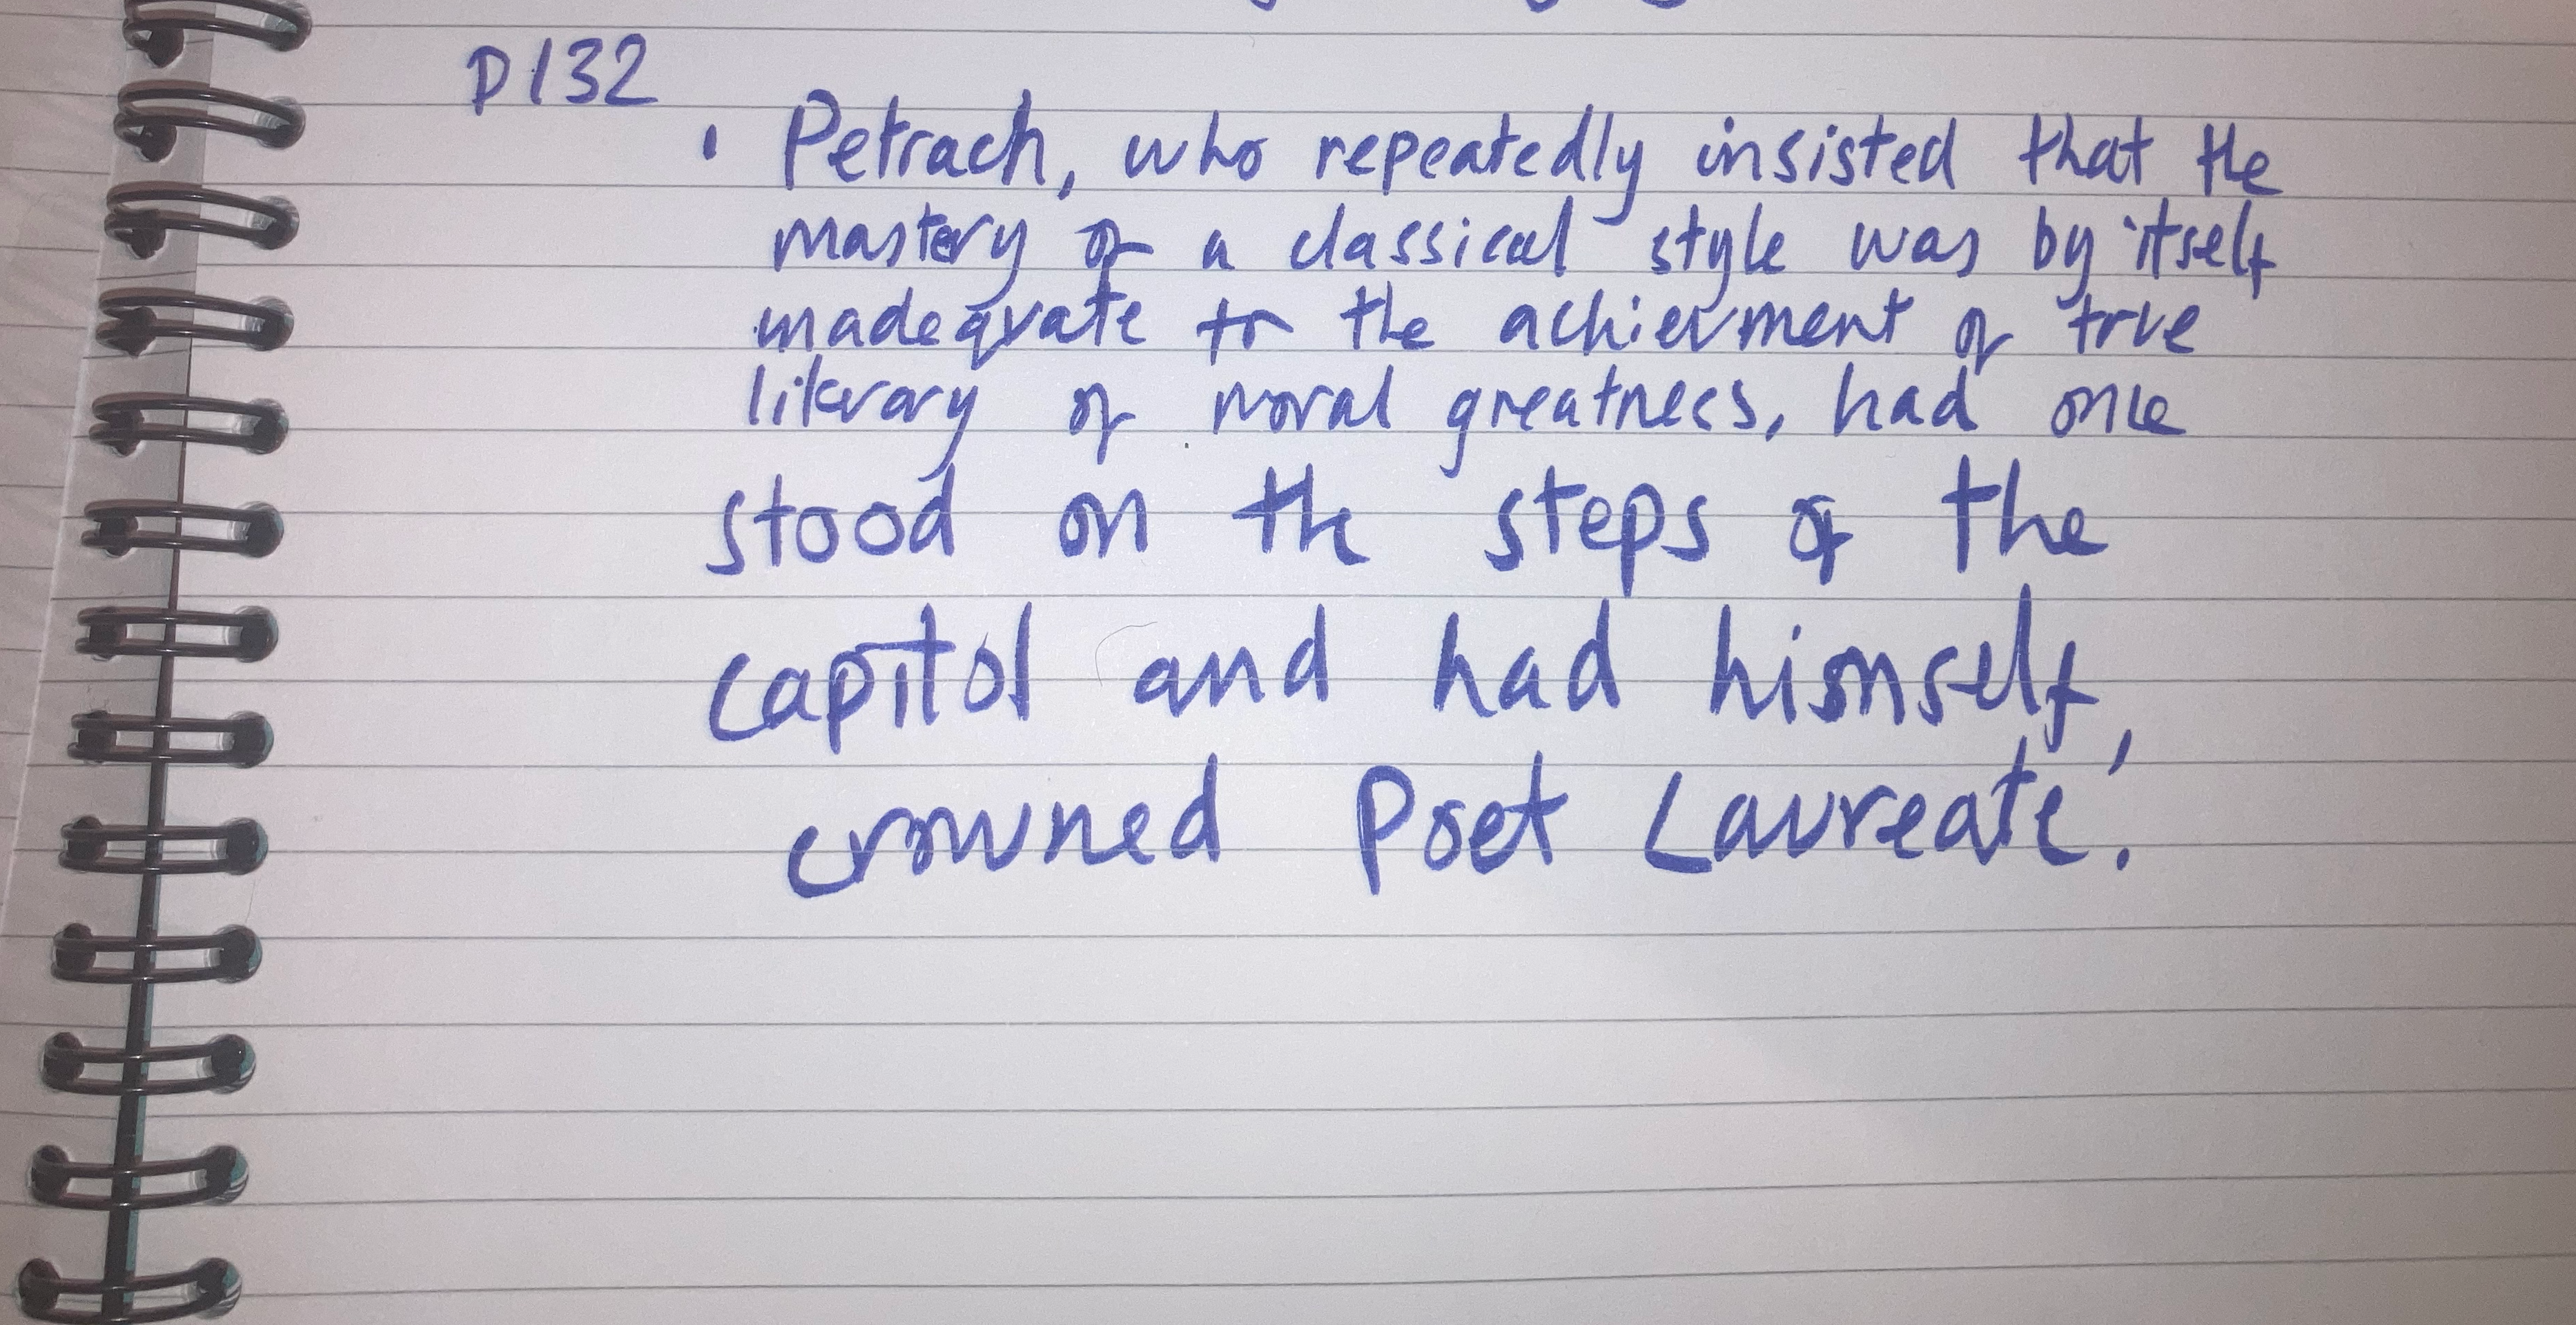 p132
' Petrach, who repeatedly insisted that the
mastery of a classical style was by itself
inadequate to the achievment of true
literary of moral greatness, had once
stood on the steps of the
capitol and had himself,
crowned Poet Laureate'.